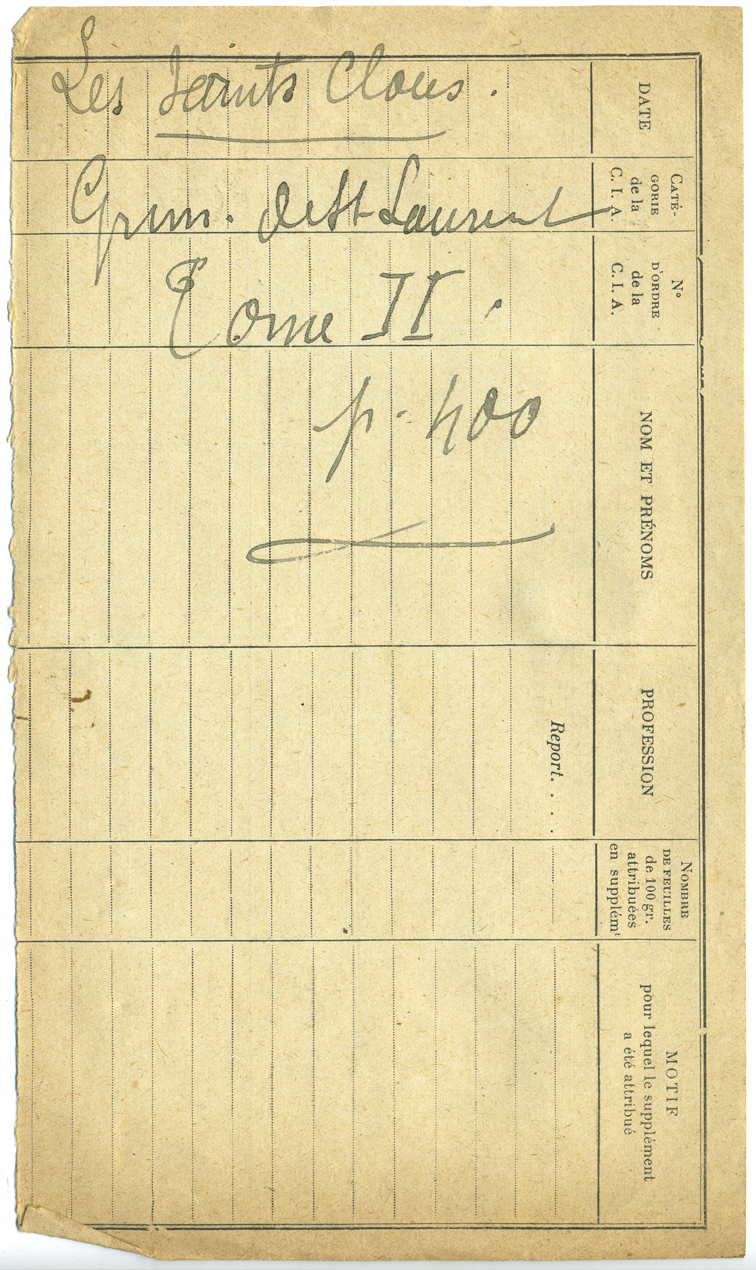 Les Saints Clous.
Grim. de St Laurent
Tome II.
p. 400
DATE
CATÉ-
GORIE
de la
C. I. A.
N°
D'ORDRE
de la
C. I. A.
NOM ET PRÉNOMS
PROFESSION
NOMBRE
DE FEUILLES
de 100 gr.
attribuées
en supplémt
MOTIF
pour lequel le supplément
a été attribué
Report. . .